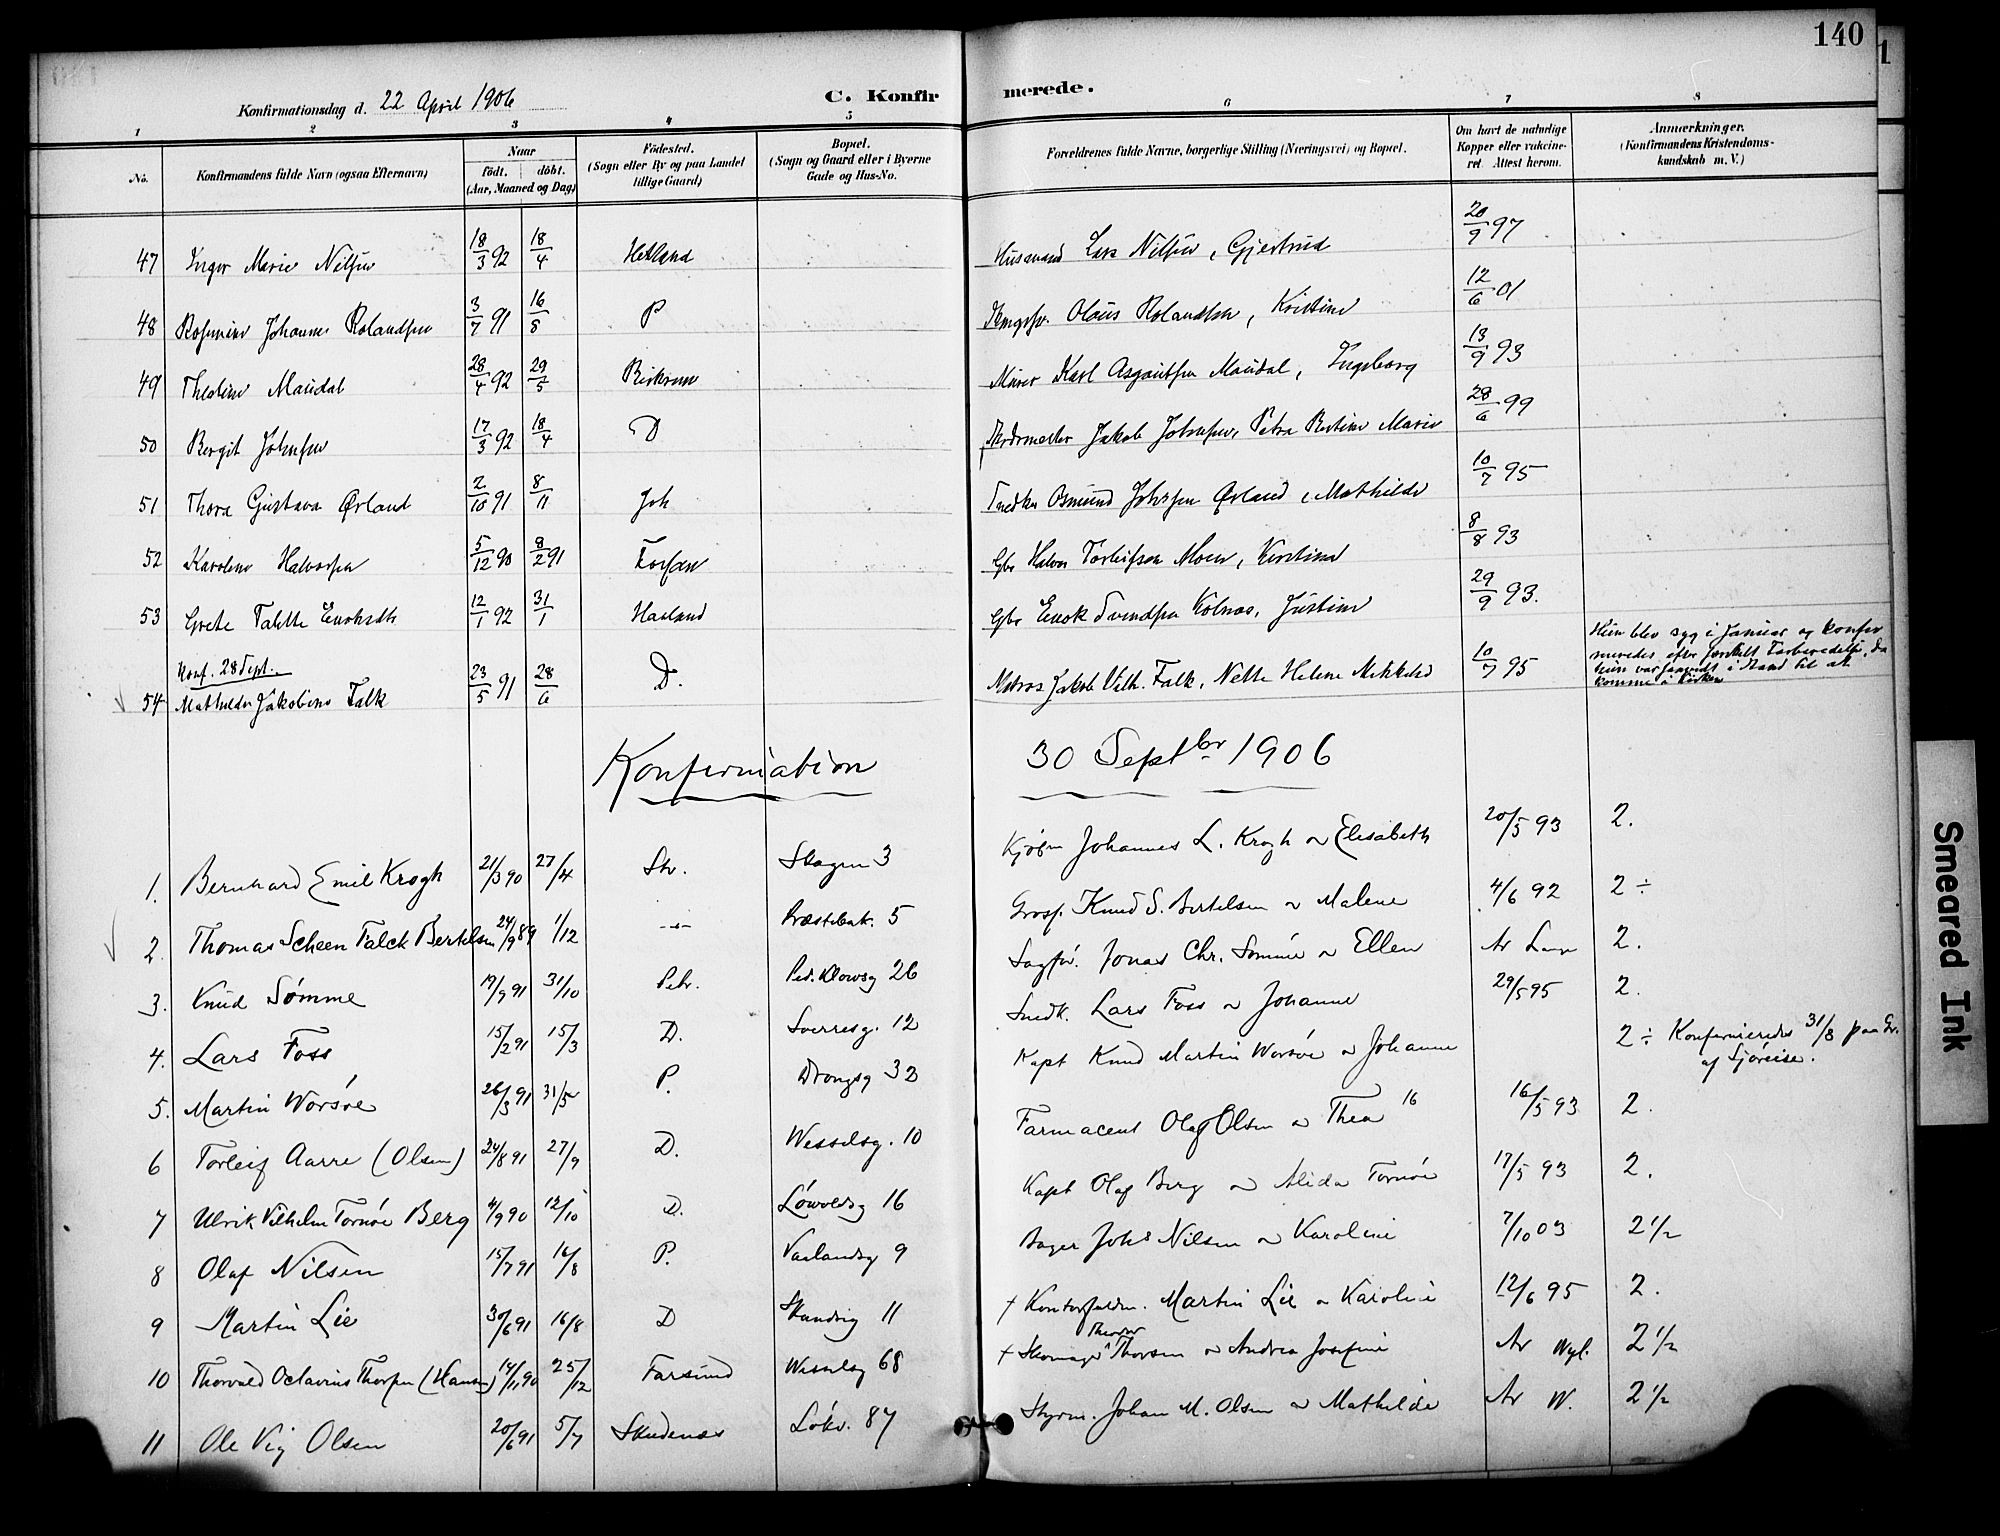 140
Konfirmationsdag d. 22 April 1906
C. Konfirmerede.
1 2 3 4 5 6 7 8
No. Konfirmandens fulde Navn (ogsaa Efternavn) Naar födt. döbt. (Aar, Maaned og Dag) Födested. (Sogn eller By og paa Landet tillige Gaard) Bopæl. (Sogn og Gaard eller i Byerne Gade og Hus-No. Forældrenes fulde Navne, borgerlige Stilling (Næringsvei) og Bopæl. Om havt de naturlige Kopper eller vaccineret. Attest herom. Anmærkninger. (Konfirmandens Kristendomskundskab m. V.)
47 Inger Marie Nilsen 18/3 92 18/4 Hetland Husmand Lars Nilsen, Gjertrud 20/9 97
48 Johanne Rolandsen 3/7 91 16/8 P Olaus Rolandsen, Kristine 12/6 01
49 Maudal 28/4 92 29/5 Murer Karl Asgautsen Maudal, Ingeborg 13/9 93
50 Bergit Johnsen 17/3 92 18/4 D Jakob Johnsen, Petra Marie 28/6 99
51 Thora Gustava Ørland 2/10 91 8/11 Joh Snedker Osmund Ørland, Mathilde 10/7 95
52 Karoline Halvorsen 5/12 90 8/2 91 Gbr Halvor Torleifsen Moen, Kirstine 8/8 93
53 Grete Talette Enoksdtr 12/1 92 31/1 Haaland Gbr Enok Svendsen Kolnæs, Justine 29/9 93.
Konf. 28 Sept.
54 Mathilde Jakobine Falk 23/5 91 28/6 D. Matros Jakob Vilh. Falk, Nette Helene 10/7 95 Hun blev syg i Januar og konfirmeredes efter Forberedelse, da hun var i Stand til at komme i Kirken
Konfirmation 30 Septbr 1906
1. Bernhard Emil Krogh 21/3 90 27/4 Stv. Skagen 3 Kjøbm Johannes L. Krogh o Elisabeth 20/5 93 2.
2. Thomas Scheen Falck Bertelsen 24/9 89 1/12 -"- Præstebak. 5 Gross. Knud S. Bertelsen o Malene 4/6 92 2 ÷
3. Knud Sømme 19/9 91 31/10 Petr. Ped. Klowsg 26 Sagfør. Jonas Chr. Sømme o Ellen Ar 2.
4. Lars Foss 15/2 91 15/3 D. Sverresg. 12 Snedk. Lars Foss o Johanne 29/5 95 2.
5. Martin Worsøe 26/3 91 31/5 P. Drongsg 32 Kapt Knud Martin Worsøe o Johanne 2 ÷ Konfirmeredes 31/8 paa Gr. af Sjøreise.
6 Torleif Aarre (Olsen) 24/8 91 27/9 D. Wesselsg. 10 Farmaceut Olaf Olsen o Thea 16 16/5 93 2.
7 Ulrik Vilhelm Tornøe Berg 4/9 90 12/10 D. Løwoldsg 16 Kapt Olaf Berg o Alida Tornøe 17/5 93 2.
8 Olaf Nilsen 15/7 91 16/8 P. Vaulandsg 9 Bager Johs Nilsen o Karoline 7/10 03 2 1/2
9 Martin Lie 30/6 91 16/8 D 11 † Kontorfuldm. Martin Lie o Karoline 12/6 95 2.
10 Thorvald Octavius Thorsen (Hansen) 14/11 90 25/12 Farsund Wesselsg 68 † Skomager Theodor Thorsen o Andrea Josefine Ar 2 1/2
11 Ole Vig Olsen 20/6 91 5/7 Skudenæs Løkv. 87 Styrm. Johan M. Olsen o Mathilde Ar W. 2 1/2
Smeared Ink